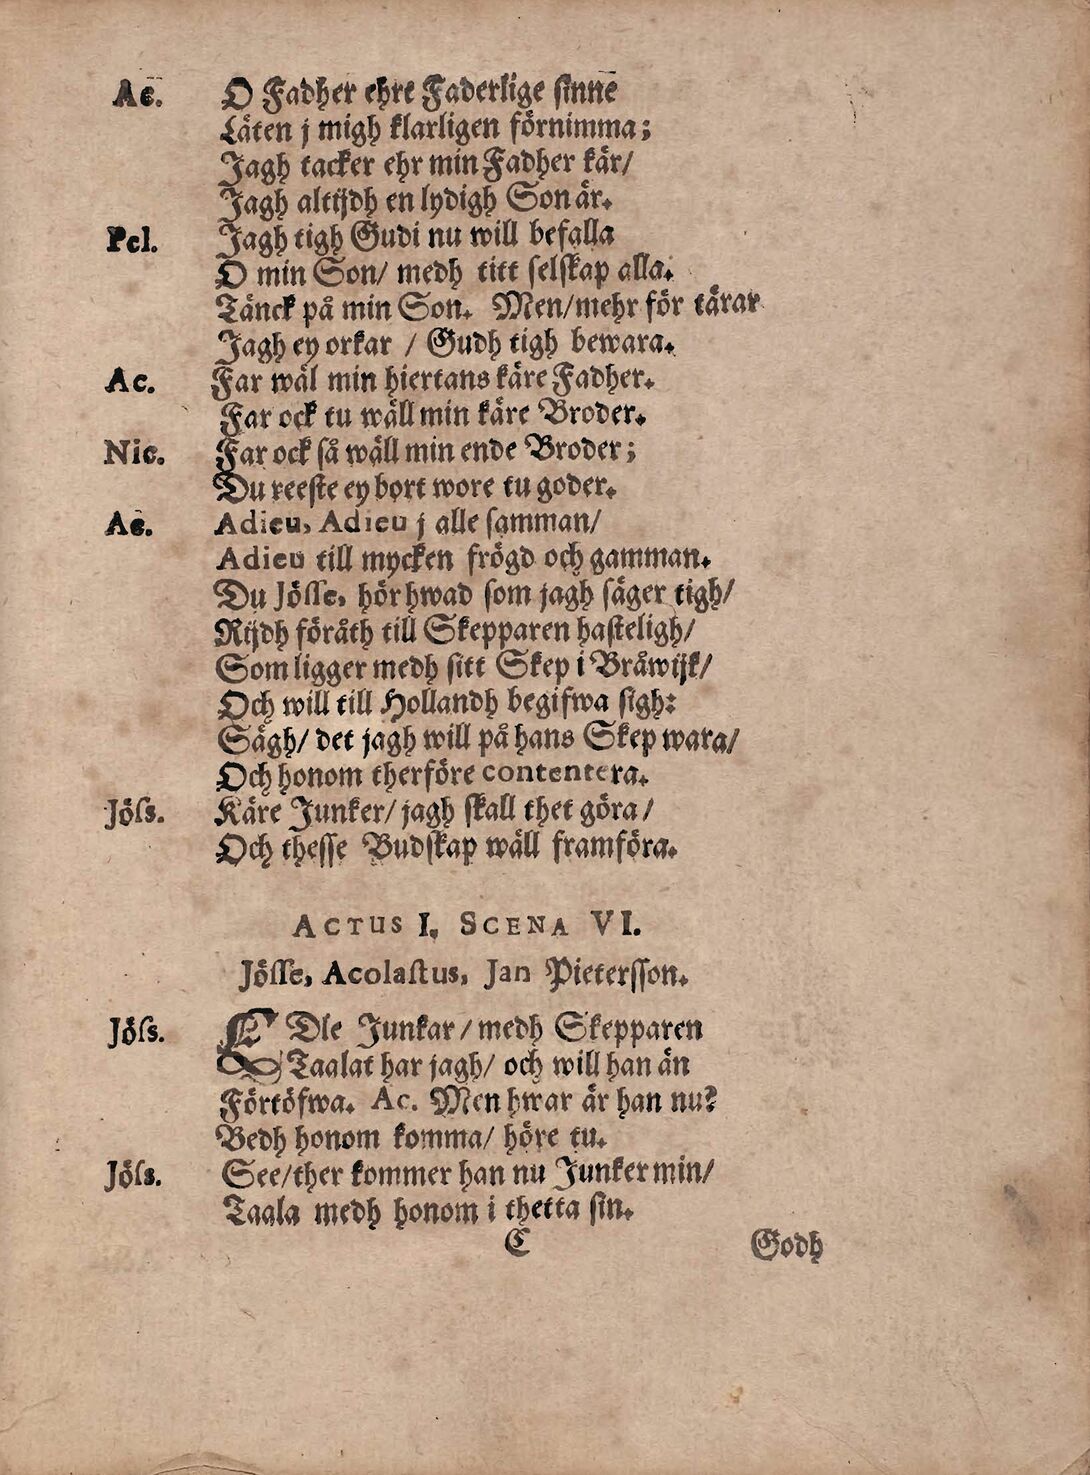 Ac. O Fadher ehre Faderlige sinne
Låten j migh klarligen förnimma;
Jagh tacker ehr min Fadher kär/
Jagh altijdh en lydigh Son är.
Pel. Jagh tigh Gudi nu will befalla
O min Son/ medh titt selskap alla.
Tänck på min Son. Men/mehr för tårar
Jagh ey orkar / Gudh tigh bewara.
Ac. Far wäl min hiertans käre Fadher.
Far ock tu wäll min käre Broder.
Nic. Far ock så wäll min ende Broder;
Du reeste ey bort wore tu goder.
Ac. Adieu, Adieu j alle samman/
Adieu till mycken frögd och gamman.
Du Jösse, hör hwad som jagh säger tigh/
Rijdh föråth till Skepparen hasteligh/
Som ligger medh sitt Skep i Bråwijk/
Och will till Hollandh begifwa sigh:
Sägh/ det jagh will på hans Skep wara/
Och honom therföre contentera.
Jöſs. Käre Junker/ jagh skall thet göra/
Och thesse Budskap wäll framföra.
ACTUS I. SCENA VI.
Jösse, Acolastus, Jan Pietersson.
Jöſs. EDle Junkar/ medh Skepparen
Taalat har jagh/ och will han än
Förtöfwa. Ac. Men hwar är han nu?
Bedh honom komma/ höre tu.
Jöſs. See/ther kommer han nu Junker min/
Taala medh honom i thetta sin.
C Godh